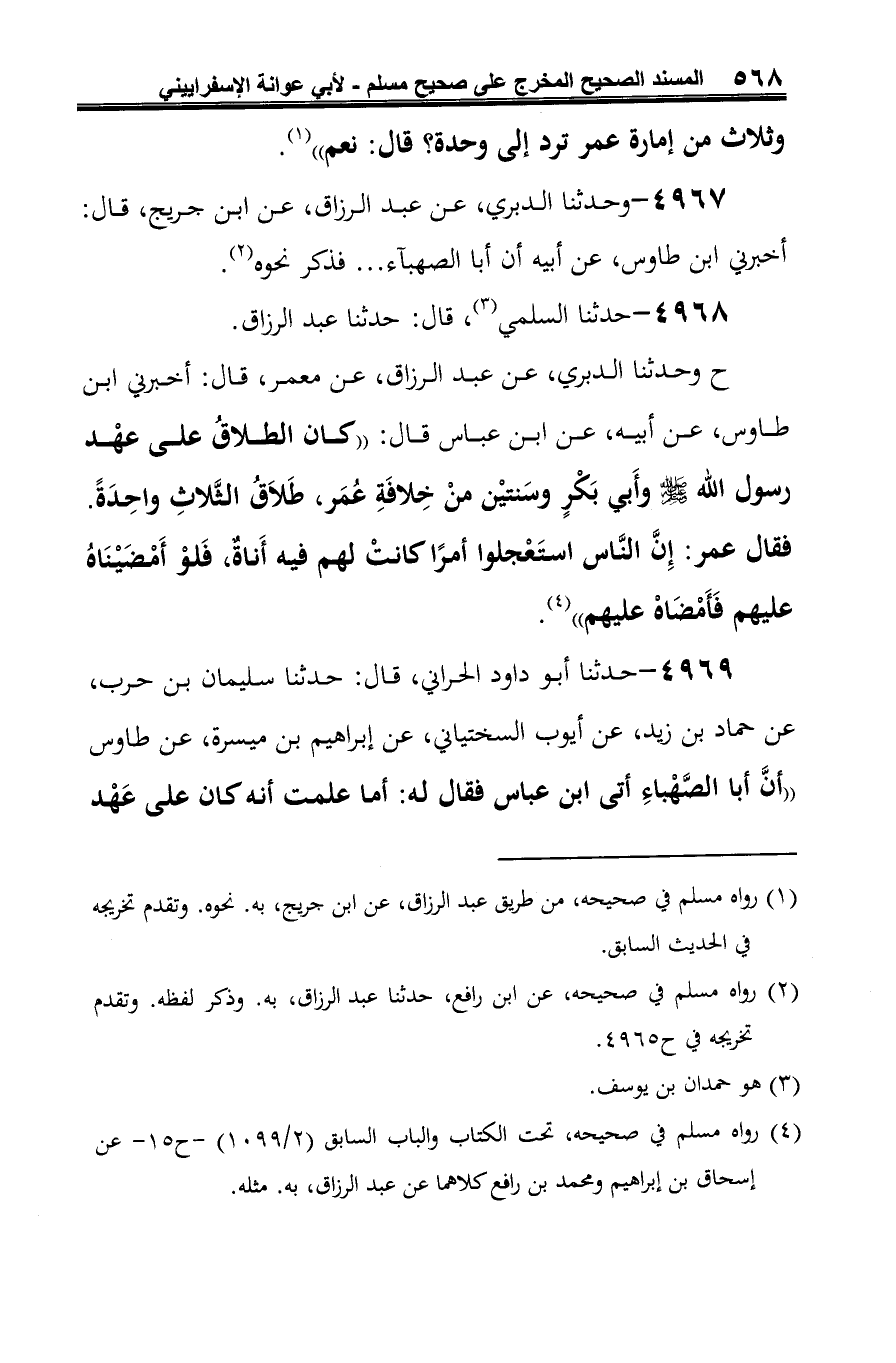 ٥٦٨ المسند الصحيح المخرج على صحيح مسلم - لأبي عوانة الإسفراييني
وثلاث من إمارة عمر ترد إلى وحدة؟ قال: نعم))(١).
٤٩٦٧-وحدثنا الدبري، عن عبد الرزاق، عن ابن جريج، قال:
أخبرني ابن طاوس، عن أبيه أن أبا الصهبآء... فذكر نحوه(٢).
٤٩٦٨-حدثنا السلمي(٣)، قال: حدثنا عبد الرزاق.
ح وحدثنا الدبري، عن عبد الرزاق، عن معمر، قال: أخبرني ابن
طاوس، عن أبيه، عن ابن عباس قال: ((كان الطلاقُ على عهْد
رسول الله ﷺ وأَبي بَكْرٍ وسَنتيْن منْ خِلافَةِ عُمَر، طَلَاَقُ الثَّلاثِ واحِدَةً.
فقال عمر: إِنَّ النَّاس استَعْجلوا أمرًا كانتْ لهم فيه أَناةٌ، فَلَوْ أَمْضَيْنَاهُ
عليهم فَأَمْضَاهْ عليهم))(٤).
٤٩٦٩-حدثنا أبو داود الحراني، قال: حدثنا سليمان بن حرب،
عن حماد بن زيد، عن أيوب السختياني، عن إبراهيم بن ميسرة، عن طاوس
((أنَّ أبا الصَّهْباءِ أتى ابن عباس فقال له: أما علمت أنه كان على عَهْد
(١) رواه مسلم في صحيحه، من طريق عبد الرزاق، عن ابن جريج، به. نحوه. وتقدم تخريجه
في الحديث السابق.
(٢) رواه مسلم في صحيحه، عن ابن رافع، حدثنا عبد الرزاق، به. وذكر لفظه. وتقدم
تخريجه في ح٤٩٦٥.
(٣) هو حمدان بن يوسف.
(٤) رواه مسلم في صحيحه، تحت الكتاب والباب السابق (١٠٩٩/٢) -ح١٥- عن
إسحاق بن إبراهيم ومحمد بن رافع كلاهما عن عبد الرزاق، به. مثله.